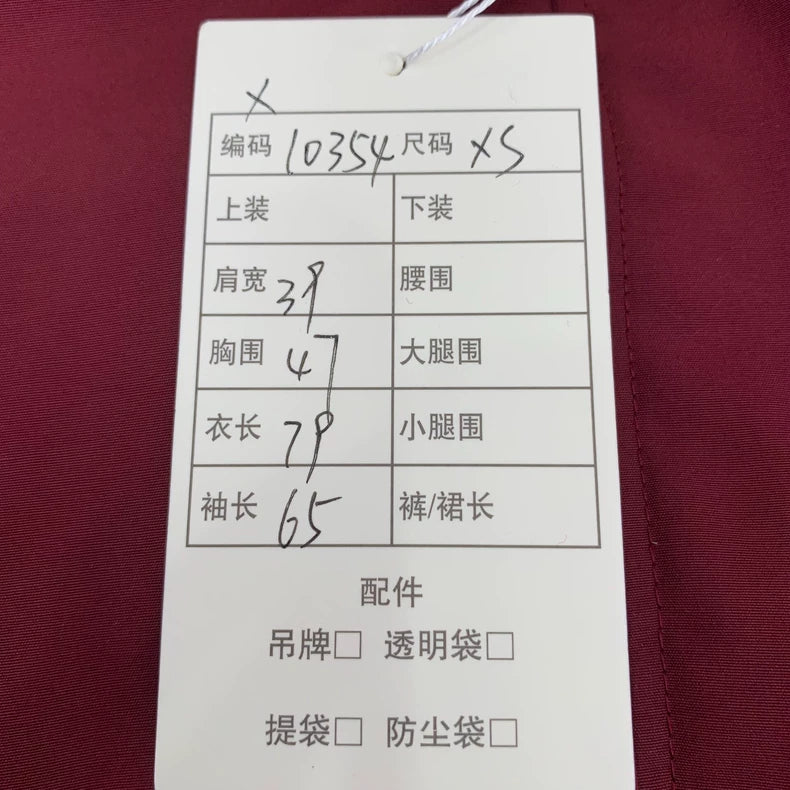 X
编码 10354 尺码 XS
上装 下装
肩宽 39 腰围
胸围 47 大腿围
衣长 79 小腿围
袖长 65 裤/裙长
配件
吊牌□ 透明袋□
提袋□ 防尘袋□